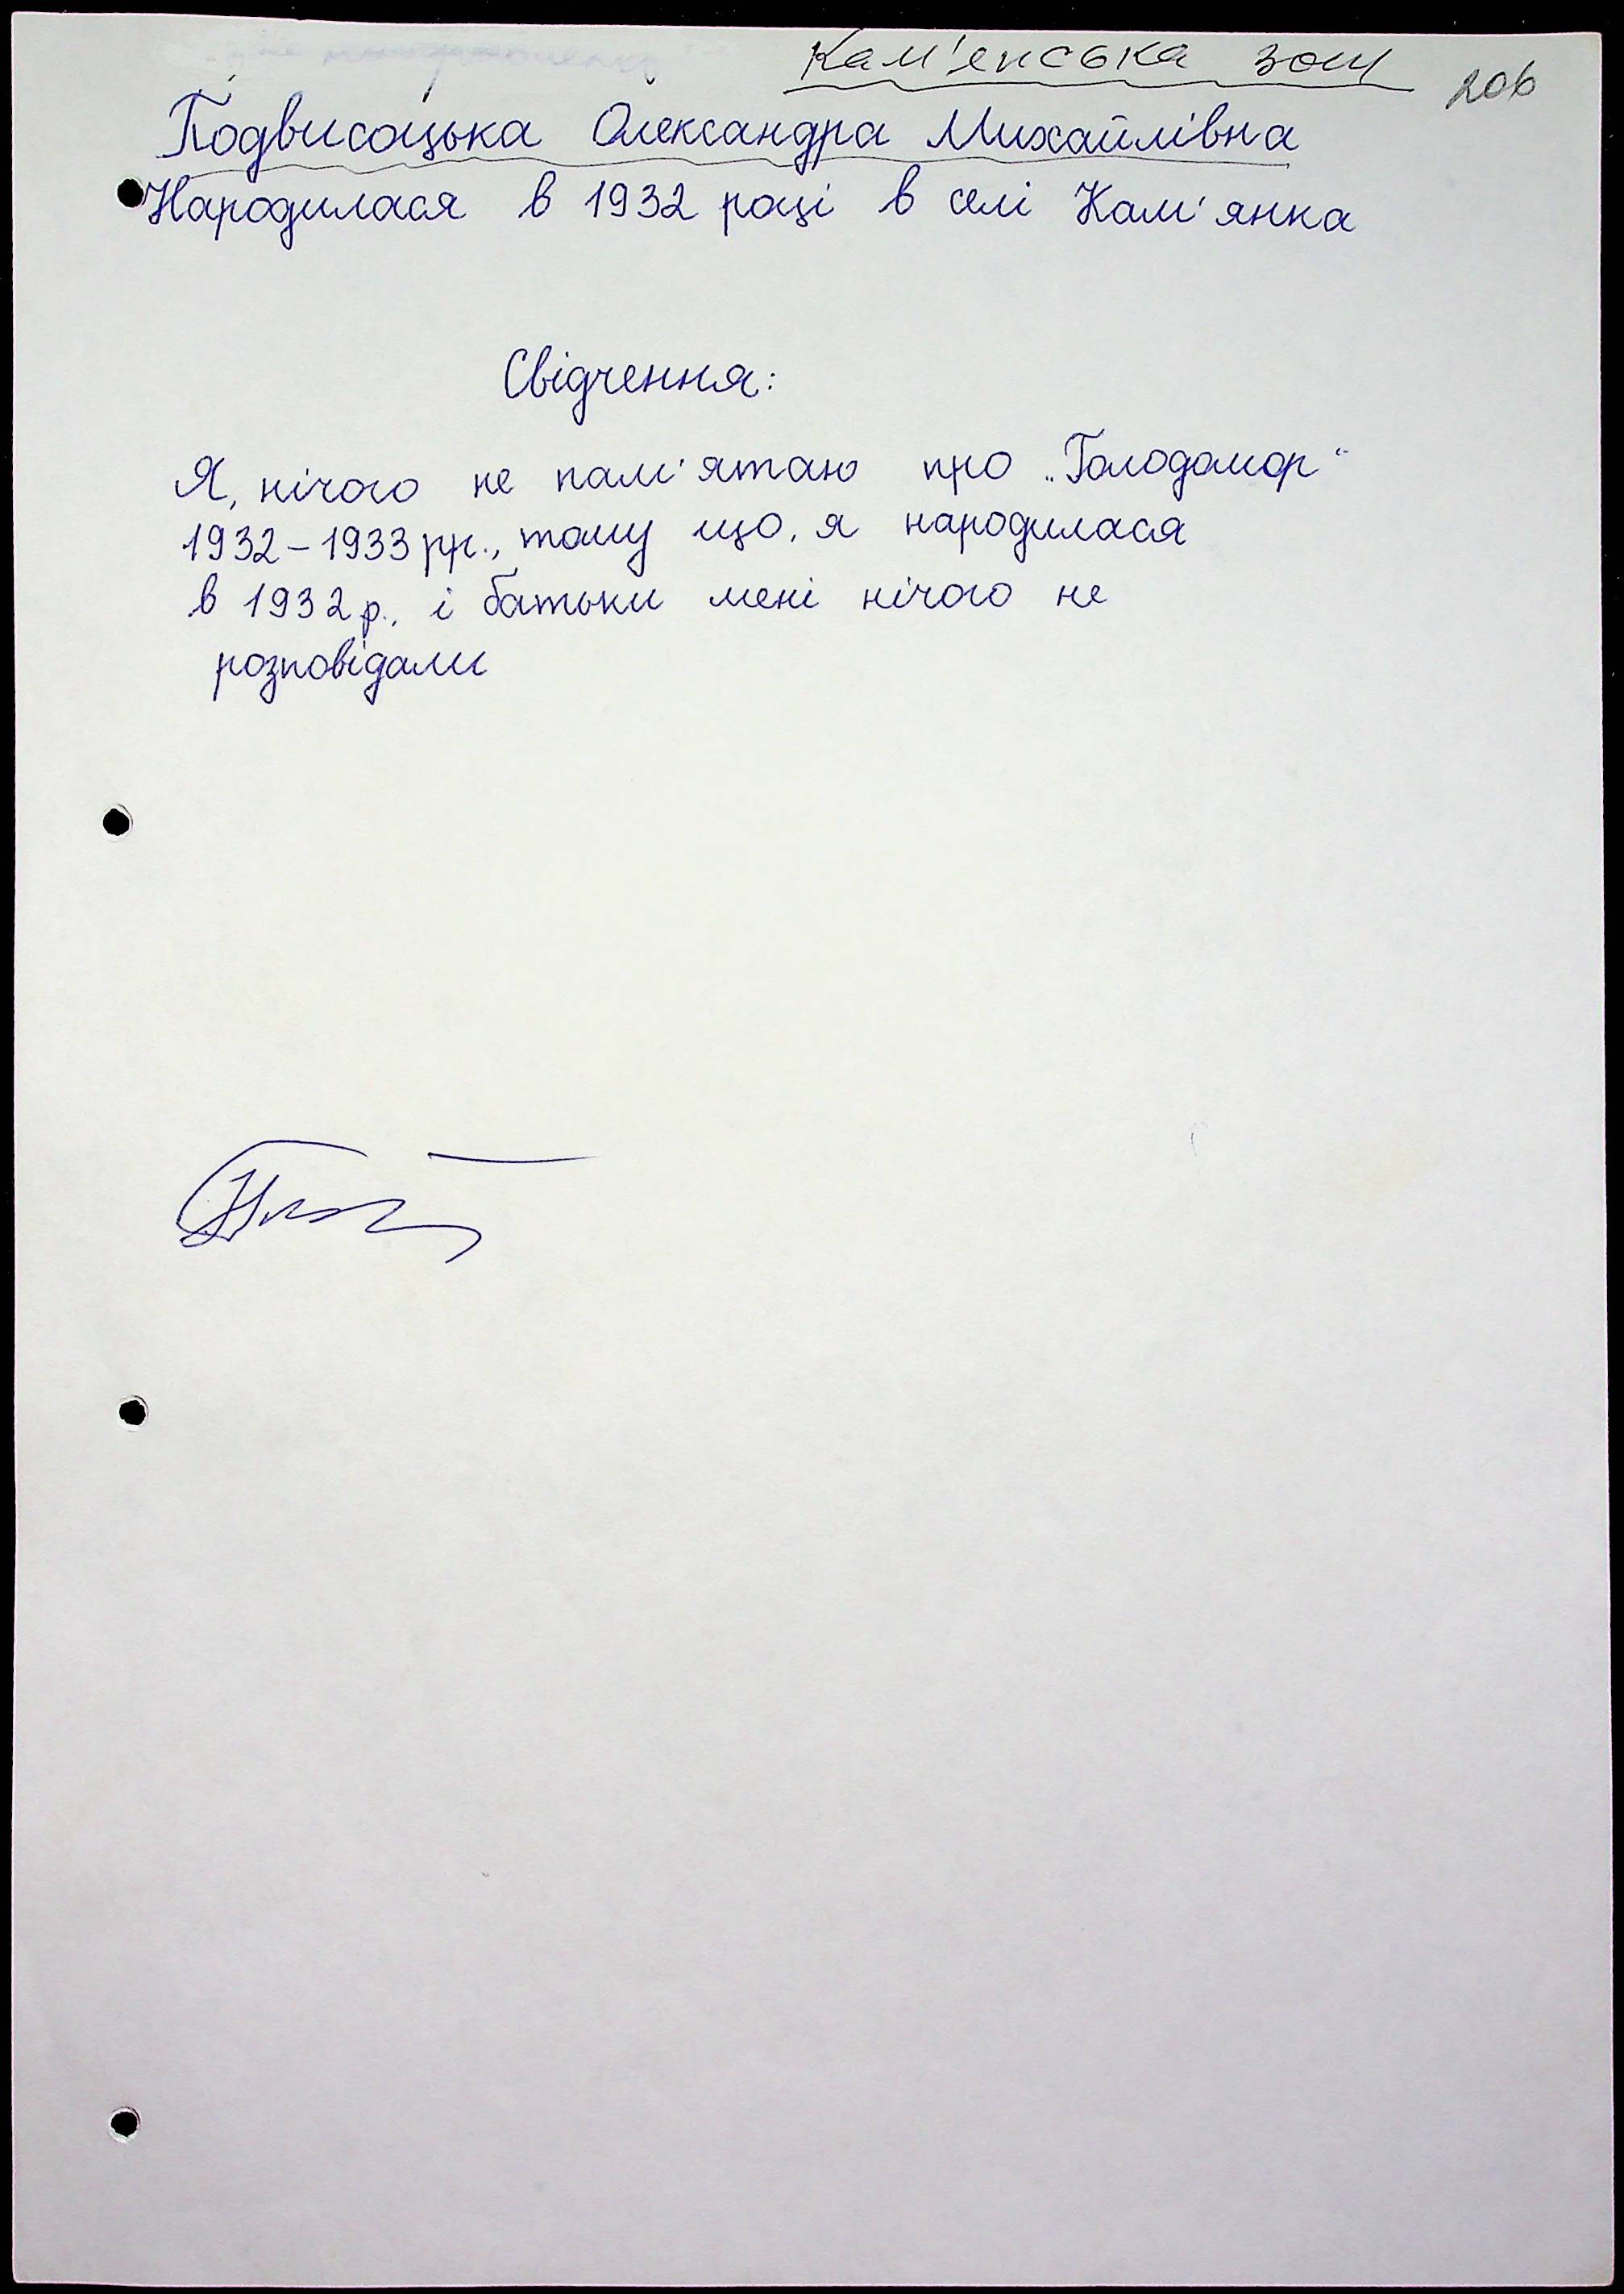 Кам'енська зош
206
Подвисоцька Олександра Михайлівна
Народилася в 1932 році в селі Кам'янка
Свідчення:
Я, нічого не пам'ятаю про „Голодомор“
1932-1933 рр., тому що, я народилася
в 1932 р., і батьки мені нічого не
розповідали